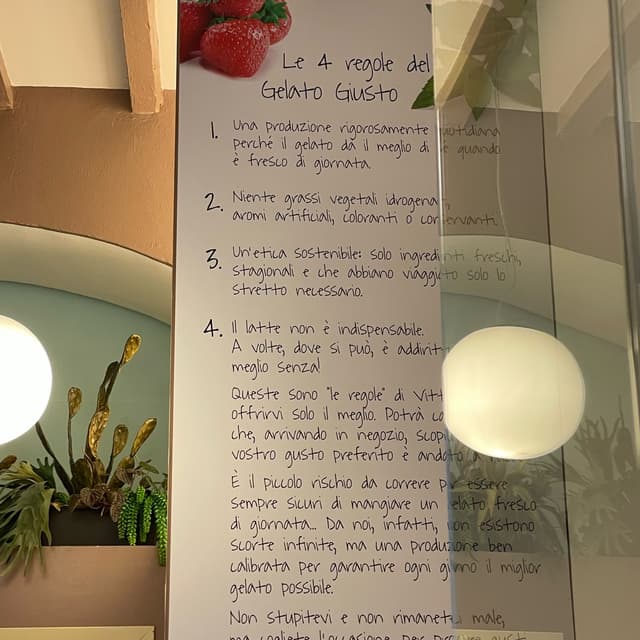 Le 4 regole del
Gelato Giusto
1. Una produzione rigorosamente quotidiana
perché il gelato dà il meglio di sé quando
è fresco di giornata.
2. Niente grassi vegetali idrogena
aromi artificiali, coloranti o conservanti.
3. Un'etica sostenibile: solo ingredienti freschi,
stagionali e che abbiano viaggiato solo lo
stretto necessario.
4. Il latte non è indispensabile.
A volte, dove si può, è addirit
meglio senza!
Queste sono "le regole" di Vitt
offrirvi solo il meglio. Potrà
che, arrivando in negozio,
vostro gusto preferito è andato a
È il piccolo rischio da correre per essere
sempre sicuri di mangiare un gelato fresco
di giornata... Da noi, infatti, non esistono
scorte infinite, ma una produzione ben
calibrata per garantire ogni giorno il miglior
gelato possibile.
Non stupitevi e non rimaneteci male,
ma cogliete l'occasione per